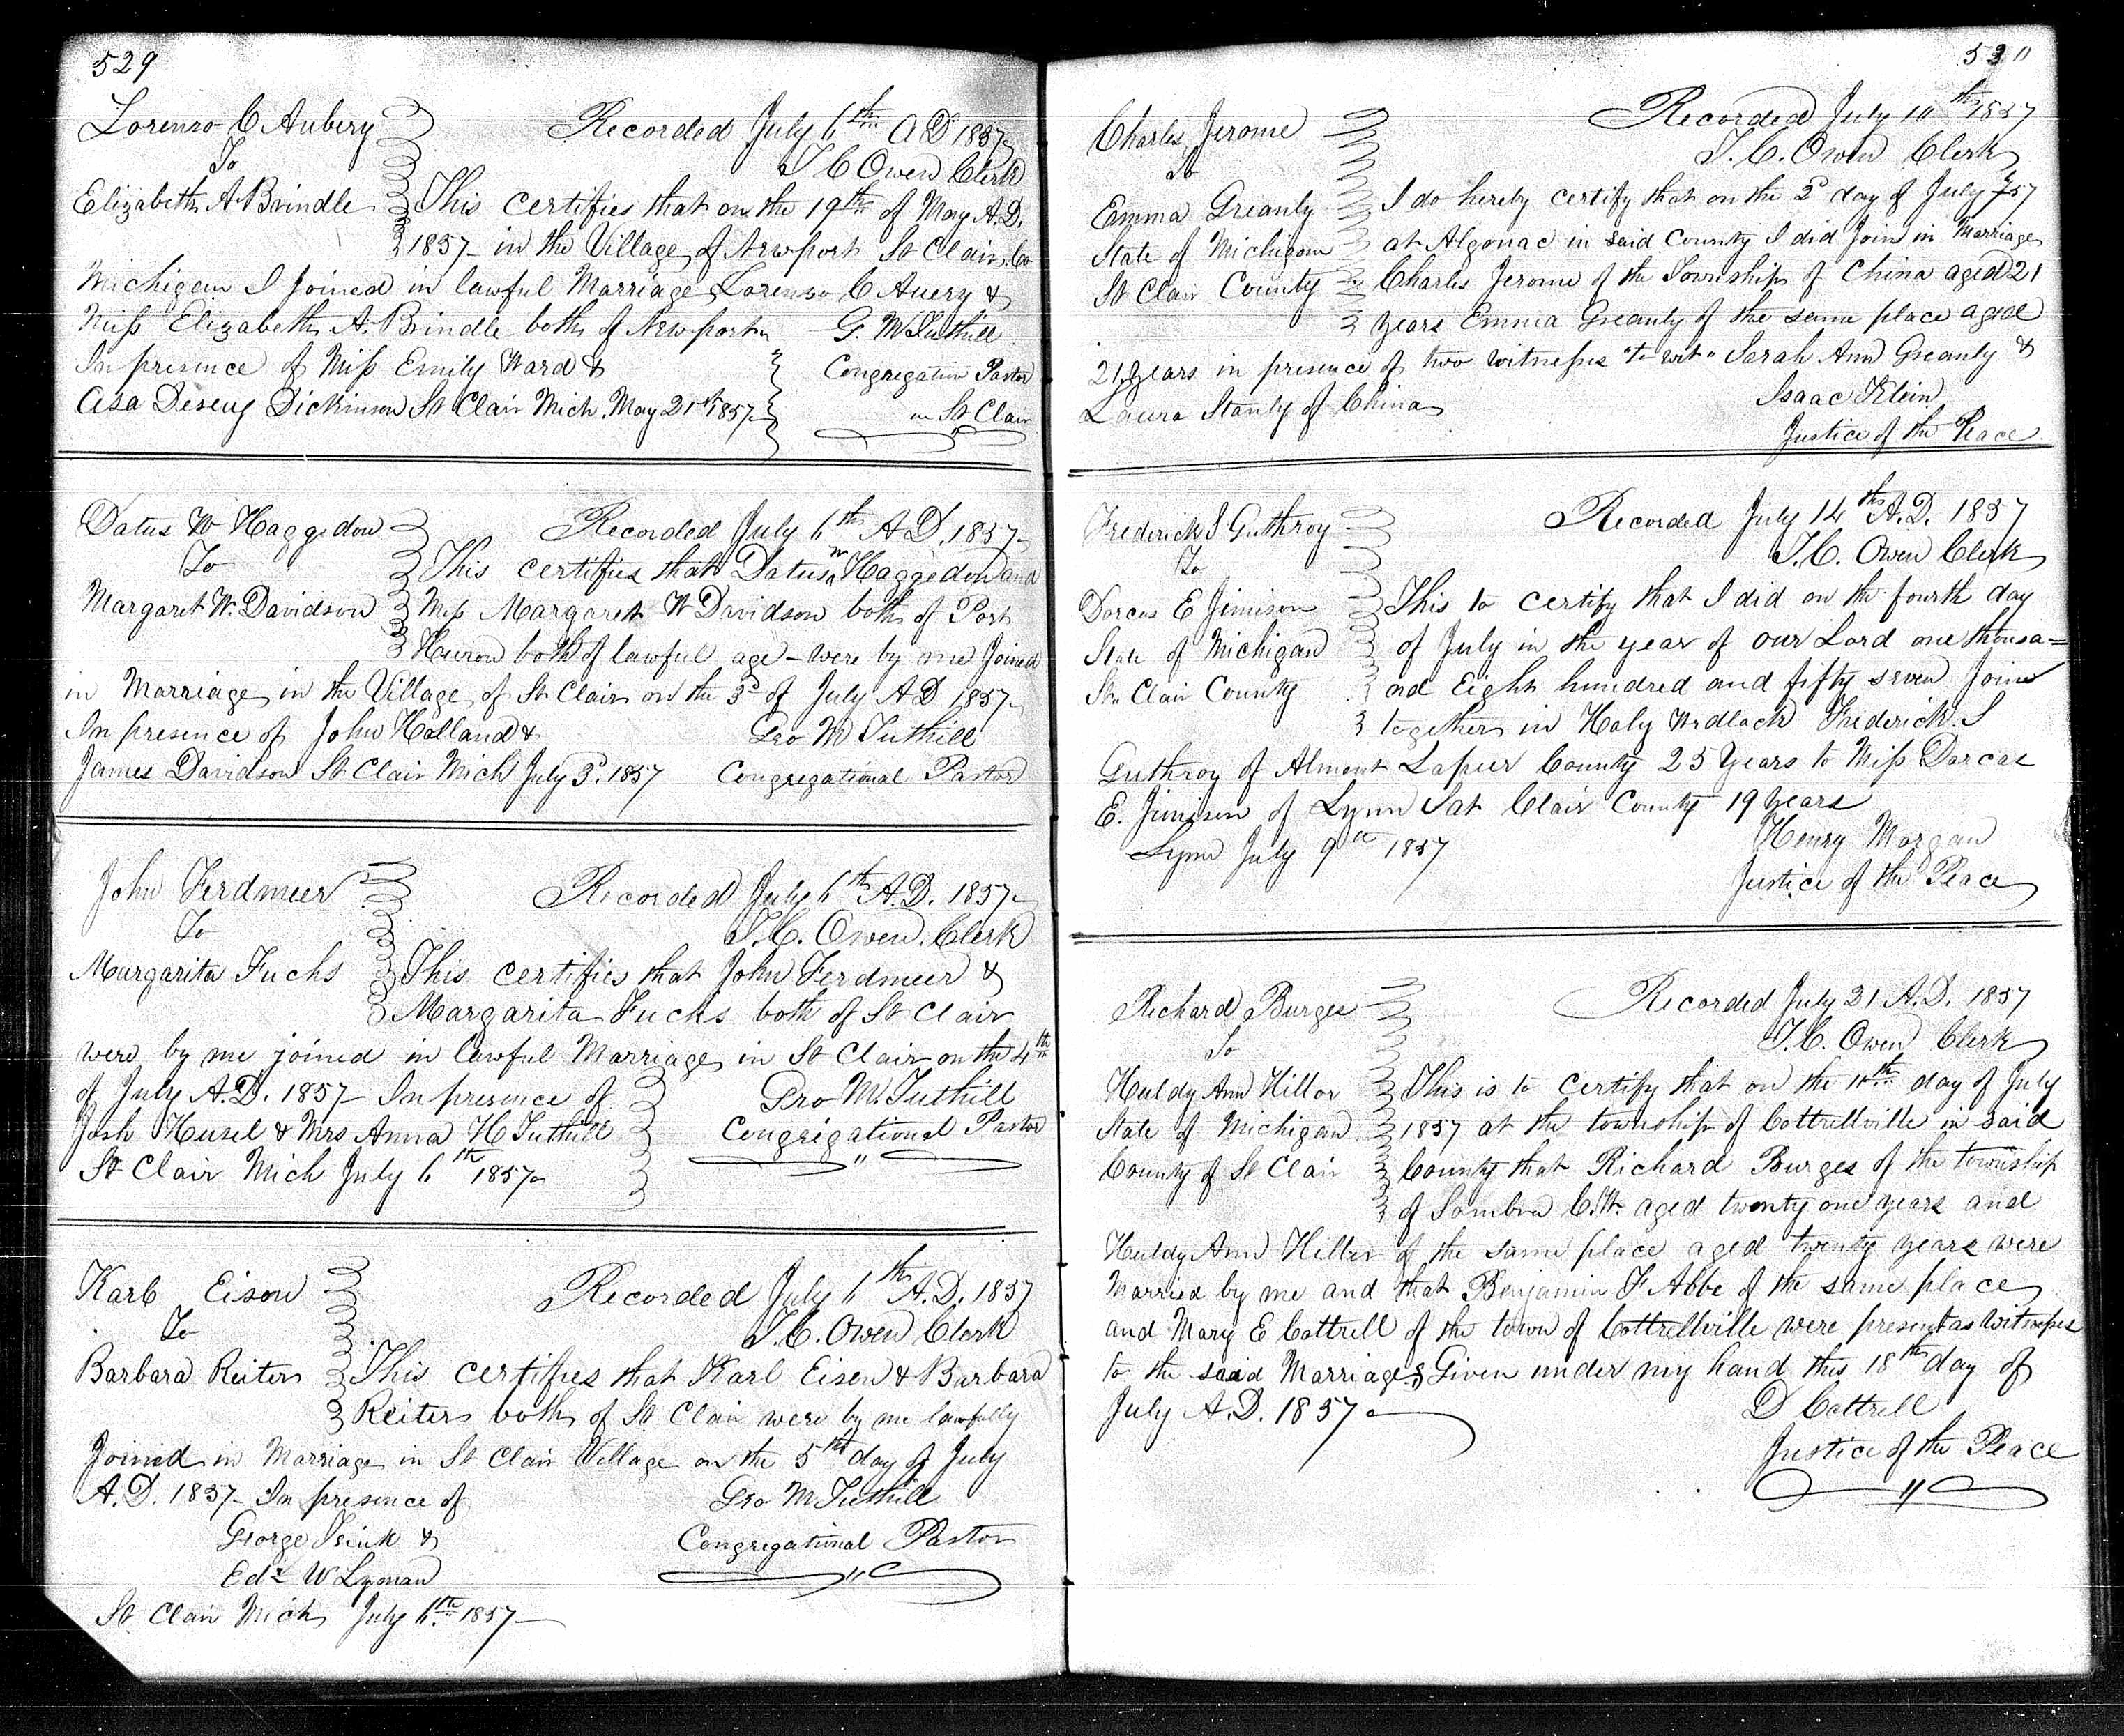 529
Lorenzo C Aubery
To
Elizabeth A Brindle
Recorded July 6th A D 1857
T C Owen Clerk
This certifies that on the 19th of May A.D.
1857 - in the Village of Newport St Clair Co
Michigan I joined in lawful Marriage Lorenzo C Avery &
Miss Elizabeth A. Brindle both of Newport
In presence of Miss Emily Ward &
Asa Dickinson St Clair Mich. May 21st 1857
G. M Tuthill
Congregation Pastor
St Clair
Datus W Haggedon
To
Margaret W. Davidson
Recorded July 6th A.D. 1857-
This certifies that Datus W Haggedon and
Miss Margarett W Davidson both of Port
Huron both of lawful age - were by me Joined
in Marriage in the Village of St Clair on the 3d of July A D 1857
In presence of John Holland &
James Davidson St Clair Mich July 3d. 1857
Geo M Tuthill
Congregational Pastor
John Ferdmeer
To
Margarita Fuchs
Recorded July 6th A.D. 1857
T.C. Owen. Clerk
This certifies that John Ferdmeer &
Margarita Fuchs both of St Clair
were by me joined in lawful Marriage in St Clair on the 4th
of July A.D. 1857 - In presence of
Josh Heusel & Mrs Anna H Tuthill
St Clair Mich July 6th 1857
Geo M. Tuthill
Congregational Pastor
Karl Eisen
To
Barbara Reiter
Recorded July 6th A.D. 1857
T.C. Owen Clerk
This certifies that Karl Eisen & Barbara
Reiter both of St Clair were by me lawfully
Joined in Marriage in St Clair Village on the 5th day of July
A.D. 1857- In presence of
George &
Edw W Lyman
St Clair Mich July 6th 1857-
Geo M Tuthill
Congregational Pastor
530
Charles Jerome
To
Emma Greanly
State of Michigan
St Clair County
Recorded July 10th 1857
T.C. Owen Clerk
I do hereby certify that on the 3d day of July 57
at Algonac in said County I did Join in Marriage
Charles Jerome of the Township of China aged 21
years Emma Greanly of the same place aged
21 years in presence of two witnesses "to wit" Sarah Ann Greanly &
Laura Stanly of China
Isaac Klein
Justice of the Peace
Frederick S Guthroy
To
Dorcas E Jimison
State of Michigan
St. Clair County
Recorded July 14th A.D. 1857
T.C. Owen Clerk
This to certify that I did on the fourth day
of July in the year of our Lord one thousa=
nd Eight hundred and fifty seven Join
together in Holy Wedlock Frederick. S
Guthroy of Almont Lapeer County 25 Years to Miss Dorcas
E. Jimison of Lynn Sat Clair County 19 years
Lynn July 9th 1857
Henry Morgan
Justice of the Peace
Richard Burges
To
Huldy Ann Hiller
State of Michigan
County of St Clair
Recorded July 21 A.D. 1857
T.C. Owen Clerk
This is to certify that on the 10th day of July
1857 at the township of Cottrellville in said
County that Richard Burges of the township
of Sombra C.W. aged twenty one years and
Huldy Ann Hiller of the same place aged twenty years were
Married by me and that Benjamin F Abbe of the same place
and Mary E Cottrell of the town of Cottrellville were present as witnesses
to the said Marriage Given under my hand this 18th day of
July A.D. 1857
D Cottrell
Justice of the Peace